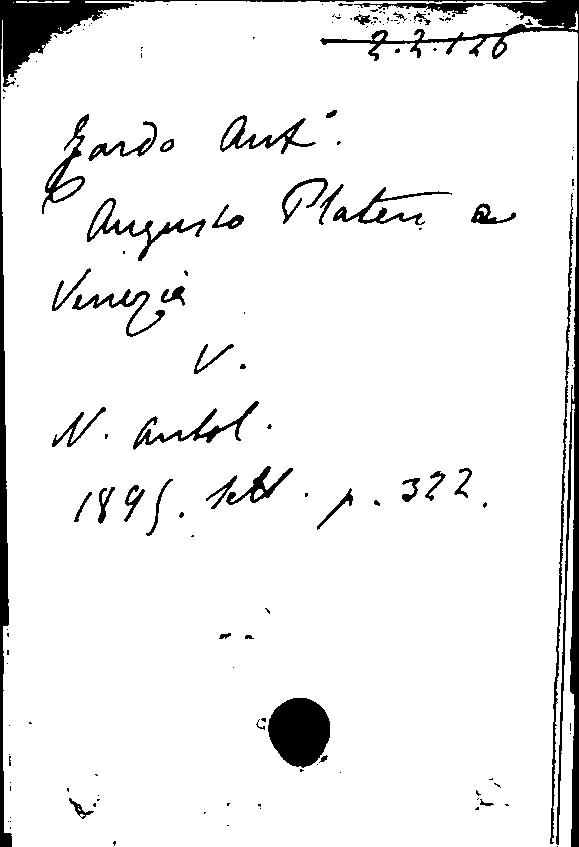 2.2.126
Zardo Ant°.
Augusto Platen a
Venezia
V.
N. Antol.
1895. Sett. p. 322.